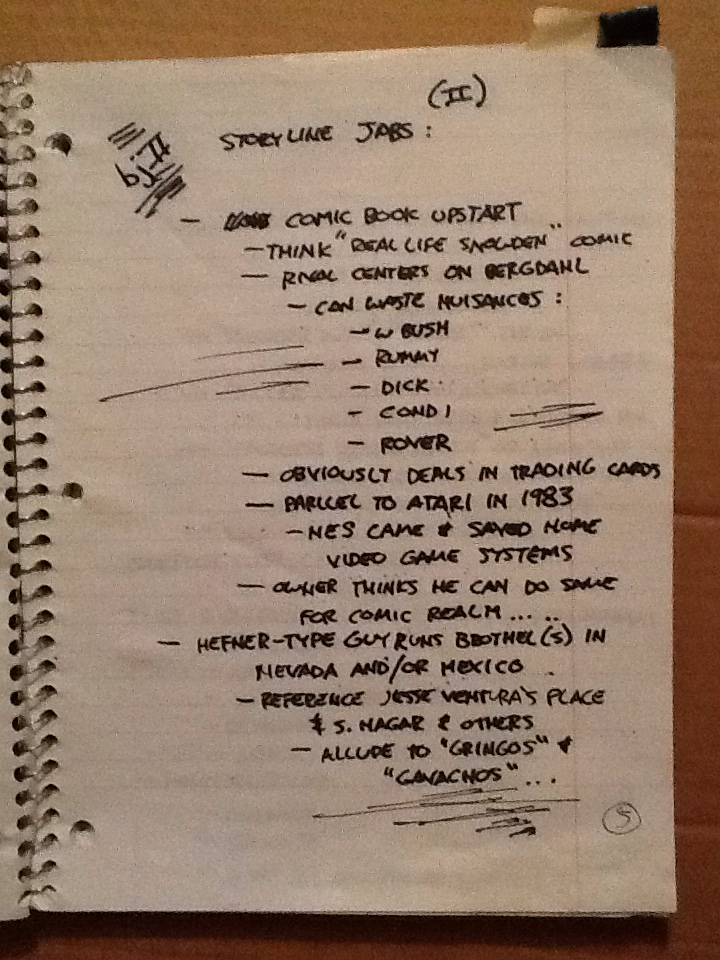 (II)
STORYLINE JABS :
- COMIC BOOK UPSTART
- THINK "REAL LIFE SNOWDEN" COMIC
- RIVAL CENTERS ON BERGDAHL
- CAN WASTE NUISANCES :
- W BUSH
- RUMMY
- DICK
- CONDI
- ROVER
- OBVIOUSLY DEALS IN TRADING CARDS
- PARLLEL TO ATARI IN 1983
- NES CAME & SAVED HOME
VIDEO GAME SYSTEMS
- OWNER THINKS HE CAN DO SAME
FOR COMIC REALM... ..
- HEFNER-TYPE GUY RUNS BROTHEL(S) IN
NEVADA AND/OR MEXICO .
- REFERENCE JESSE VENTURA'S PLACE
& S. HAGAR & OTHERS
- ALLUDE TO "GRINGOS" &
"GAVACHOS"...
5